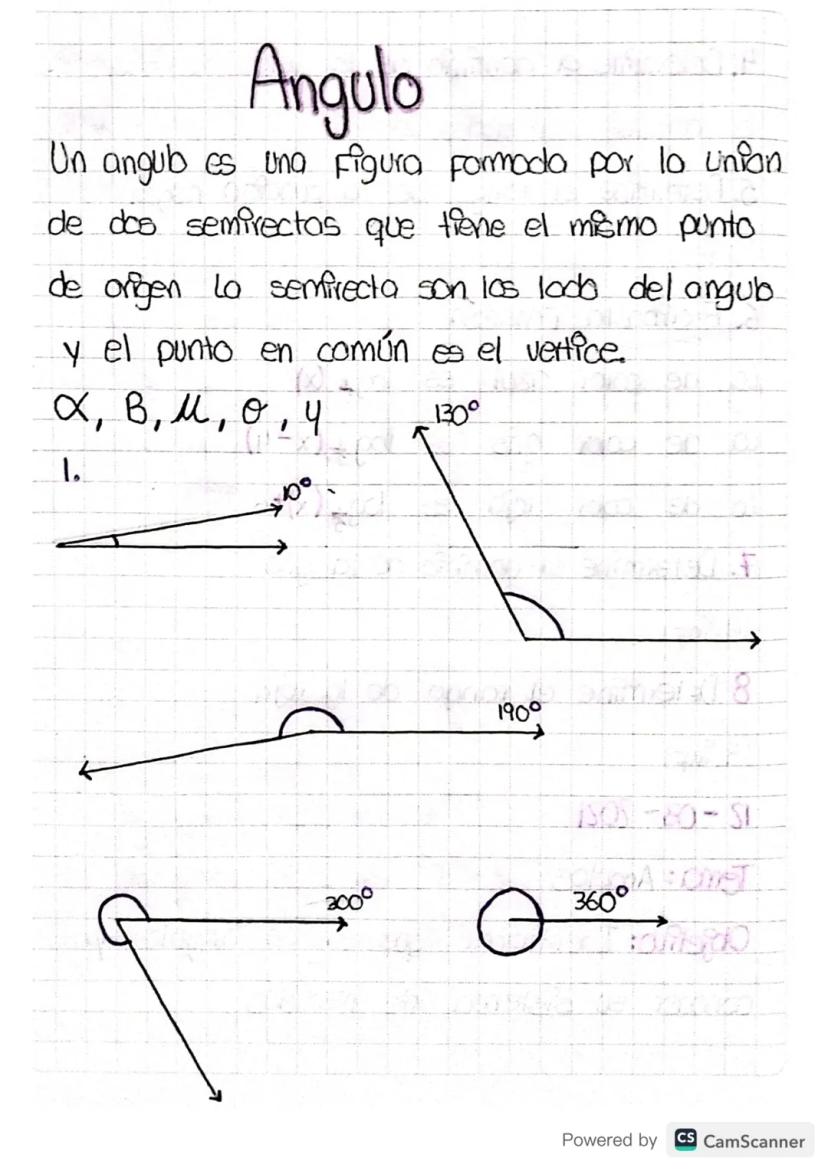 Angulo
Un angulo es una Figura formada por la unión
de dos semirectas que tiene el mismo punto
de origen La semirecta son los lado del angulo
y el punto en común es el vertice.
α, B, μ, θ, y
130°
1.
10°
190°
300°
360°
Powered by CS CamScanner